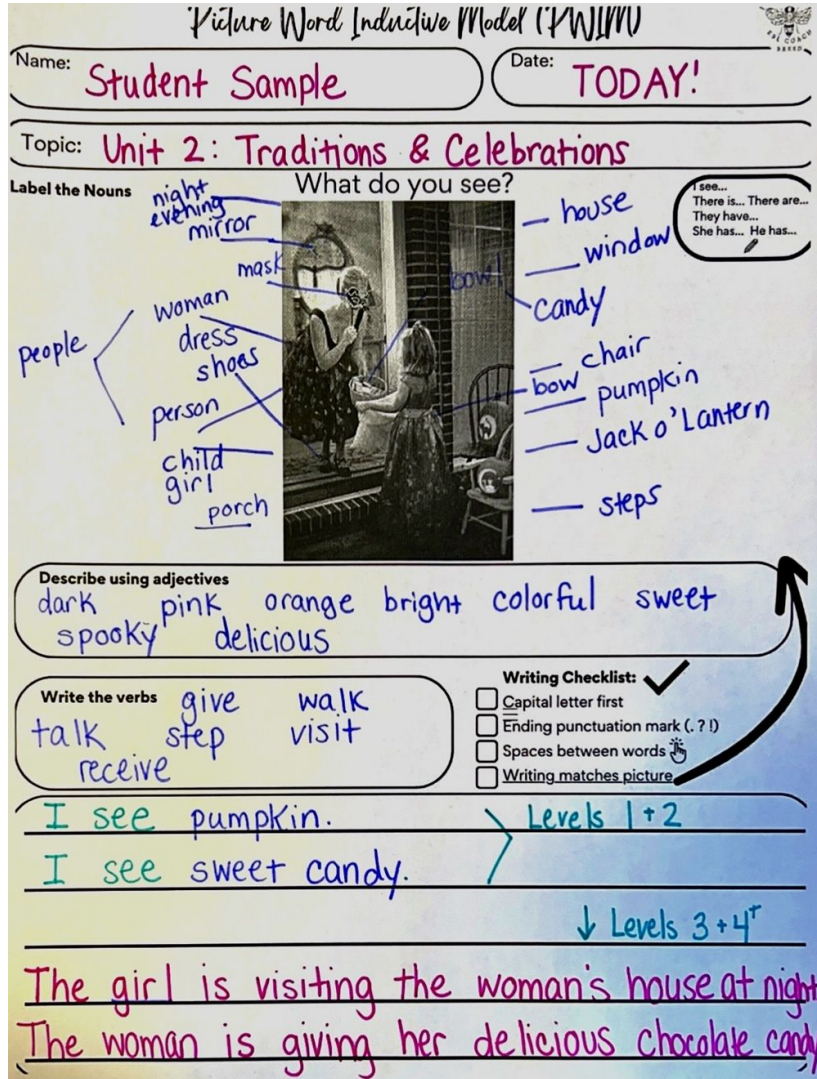 Picture Word Inductive Model (PWIM)
ESL COACH
BREED
Name: Student Sample
Date: TODAY!
Topic: Unit 2: Traditions & Celebrations
Label the Nouns
What do you see?
I see...
There is... There are...
They have...
She has... He has...
night
evening
mirror
mask
people
woman
dress
shoes
person
child
girl
porch
bowl
house
window
candy
chair
bow
pumpkin
Jack o'Lantern
steps
Describe using adjectives
dark pink orange bright colorful sweet
spooky delicious
Write the verbs give walk
talk step visit
receive
Writing Checklist:
Capital letter first
Ending punctuation mark (. ? !)
Spaces between words
Writing matches picture
I see pumpkin.
I see sweet candy.
Levels 1+2
↓ Levels 3+4+
The girl is visiting the woman's house at night
The woman is giving her delicious chocolate candy